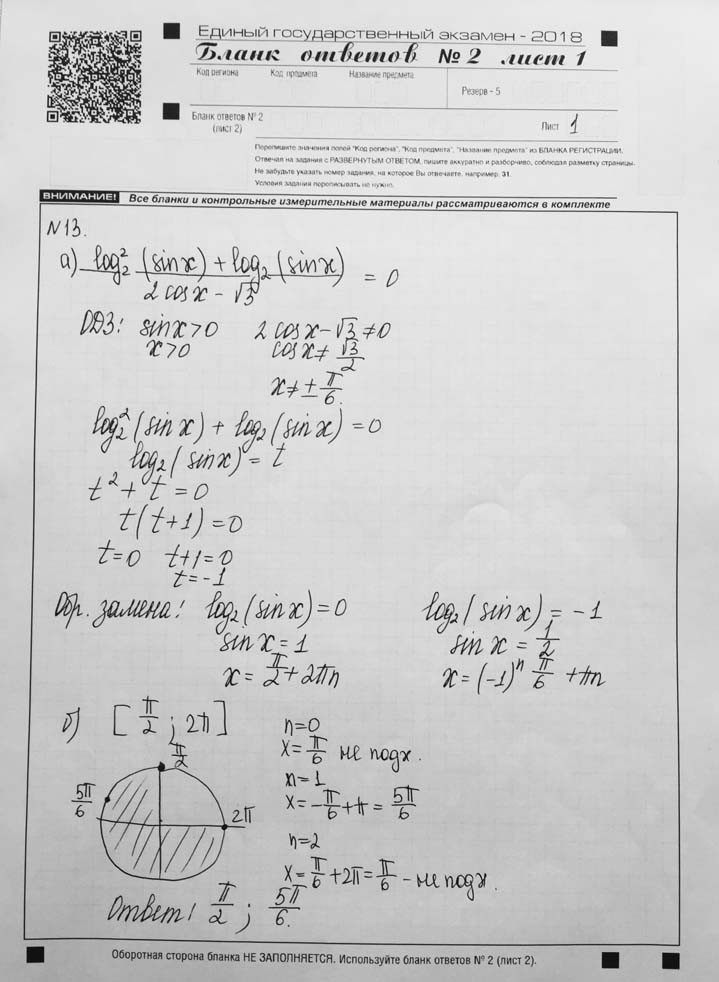 Единый государственный экзамен - 2018
Бланк ответов № 2 лист 1
Код региона Код предмета Название предмета
Резерв - 5
Бланк ответов № 2
(лист 2)
Лист 1
Перепишите значения полей "Код региона", "Код предмета", "Название предмета" из БЛАНКА РЕГИСТРАЦИИ.
Отвечая на задания с РАЗВЕРНУТЫМ ОТВЕТОМ, пишите аккуратно и разборчиво, соблюдая разметку страницы.
Не забудьте указать номер задания, на которое Вы отвечаете, например, 31.
Условия задания переписывать не нужно.
ВНИМАНИЕ! Все бланки и контрольные измерительные материалы рассматриваются в комплекте
N13.
а) (log₂²(sinx) + log₂(sinx)) / (2cosx - √3) = 0
ОДЗ: sinx>0 2cosx-√3≠0
x>0 cosx≠ √3/2
x≠± π/6.
log₂²(sinx) + log₂(sinx) = 0
log₂(sinx) = t
t² + t = 0
t(t+1) = 0
t=0 t+1=0
t=-1
Обр. замена: log₂(sinx)=0 log₂(sinx) = -1
sinx = 1 sinx = 1/2
x = π/2 + 2πn x = (-1)ⁿ π/6 + πn
б) [π/2 ; 2π]
π/2
5π/6
2π
n=0
x= π/6 не подх.
n=1
x= -π/6 + π = 5π/6
n=2
x= π/6 + 2π = π/6 - не подх.
Ответ: π/2 ; 5π/6.
Оборотная сторона бланка НЕ ЗАПОЛНЯЕТСЯ. Используйте бланк ответов № 2 (лист 2).